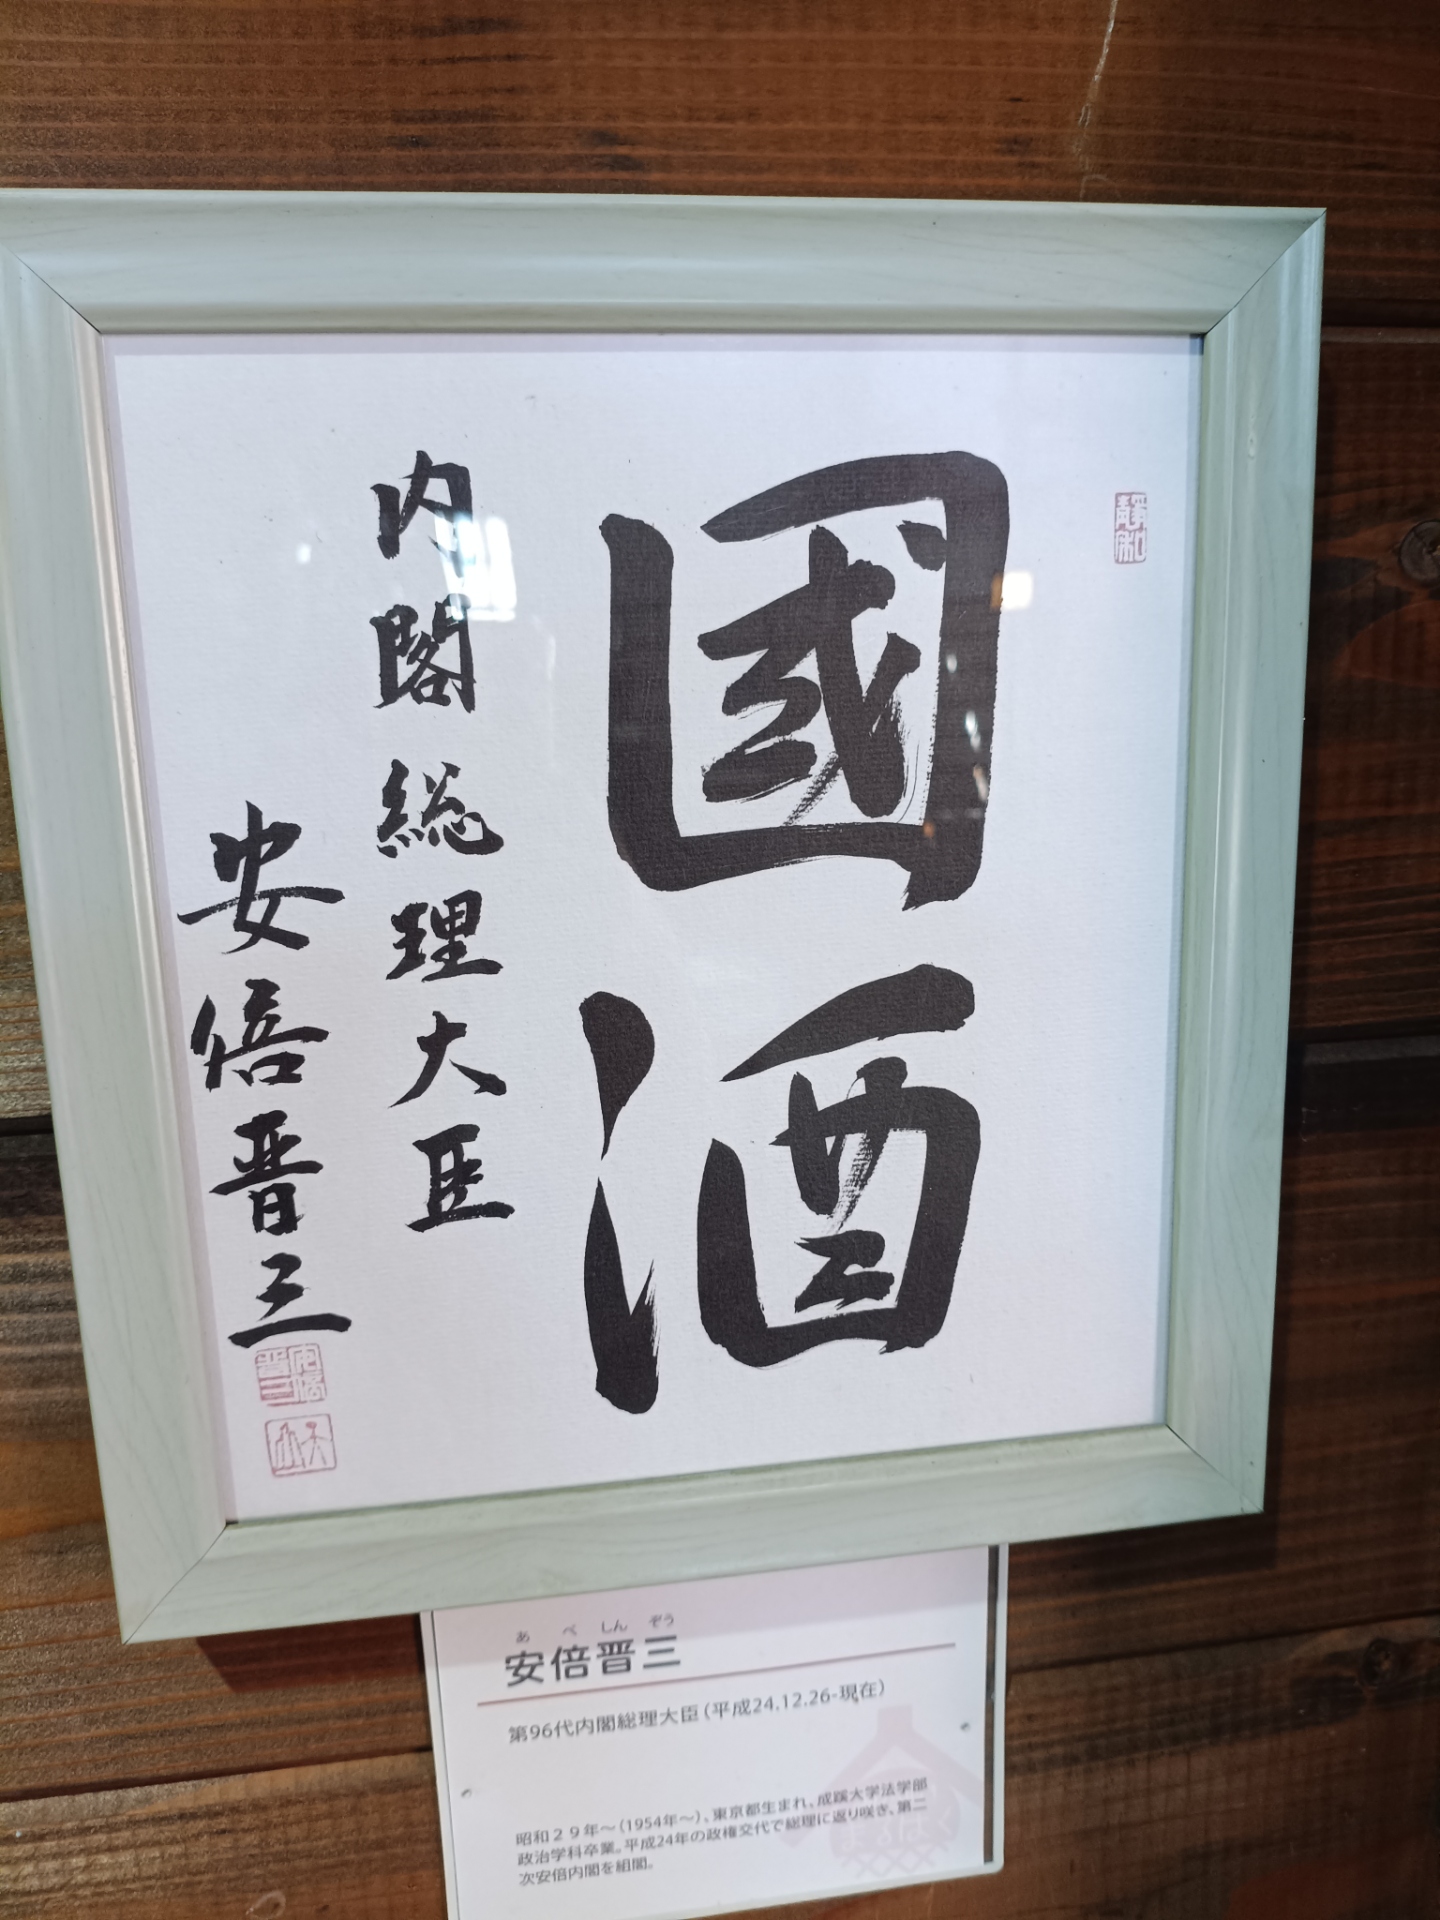 國酒
内閣総理大臣
安倍晋三
靜和
安倍晋三
あべしんぞう
安倍晋三
第96代内閣総理大臣(平成24.12.26-現在)
昭和29年〜(1954年〜)、東京都生まれ、成蹊大学法学部
政治学科卒業。平成24年の政権交代で総理に返り咲き、第二
次安倍内閣を組閣。